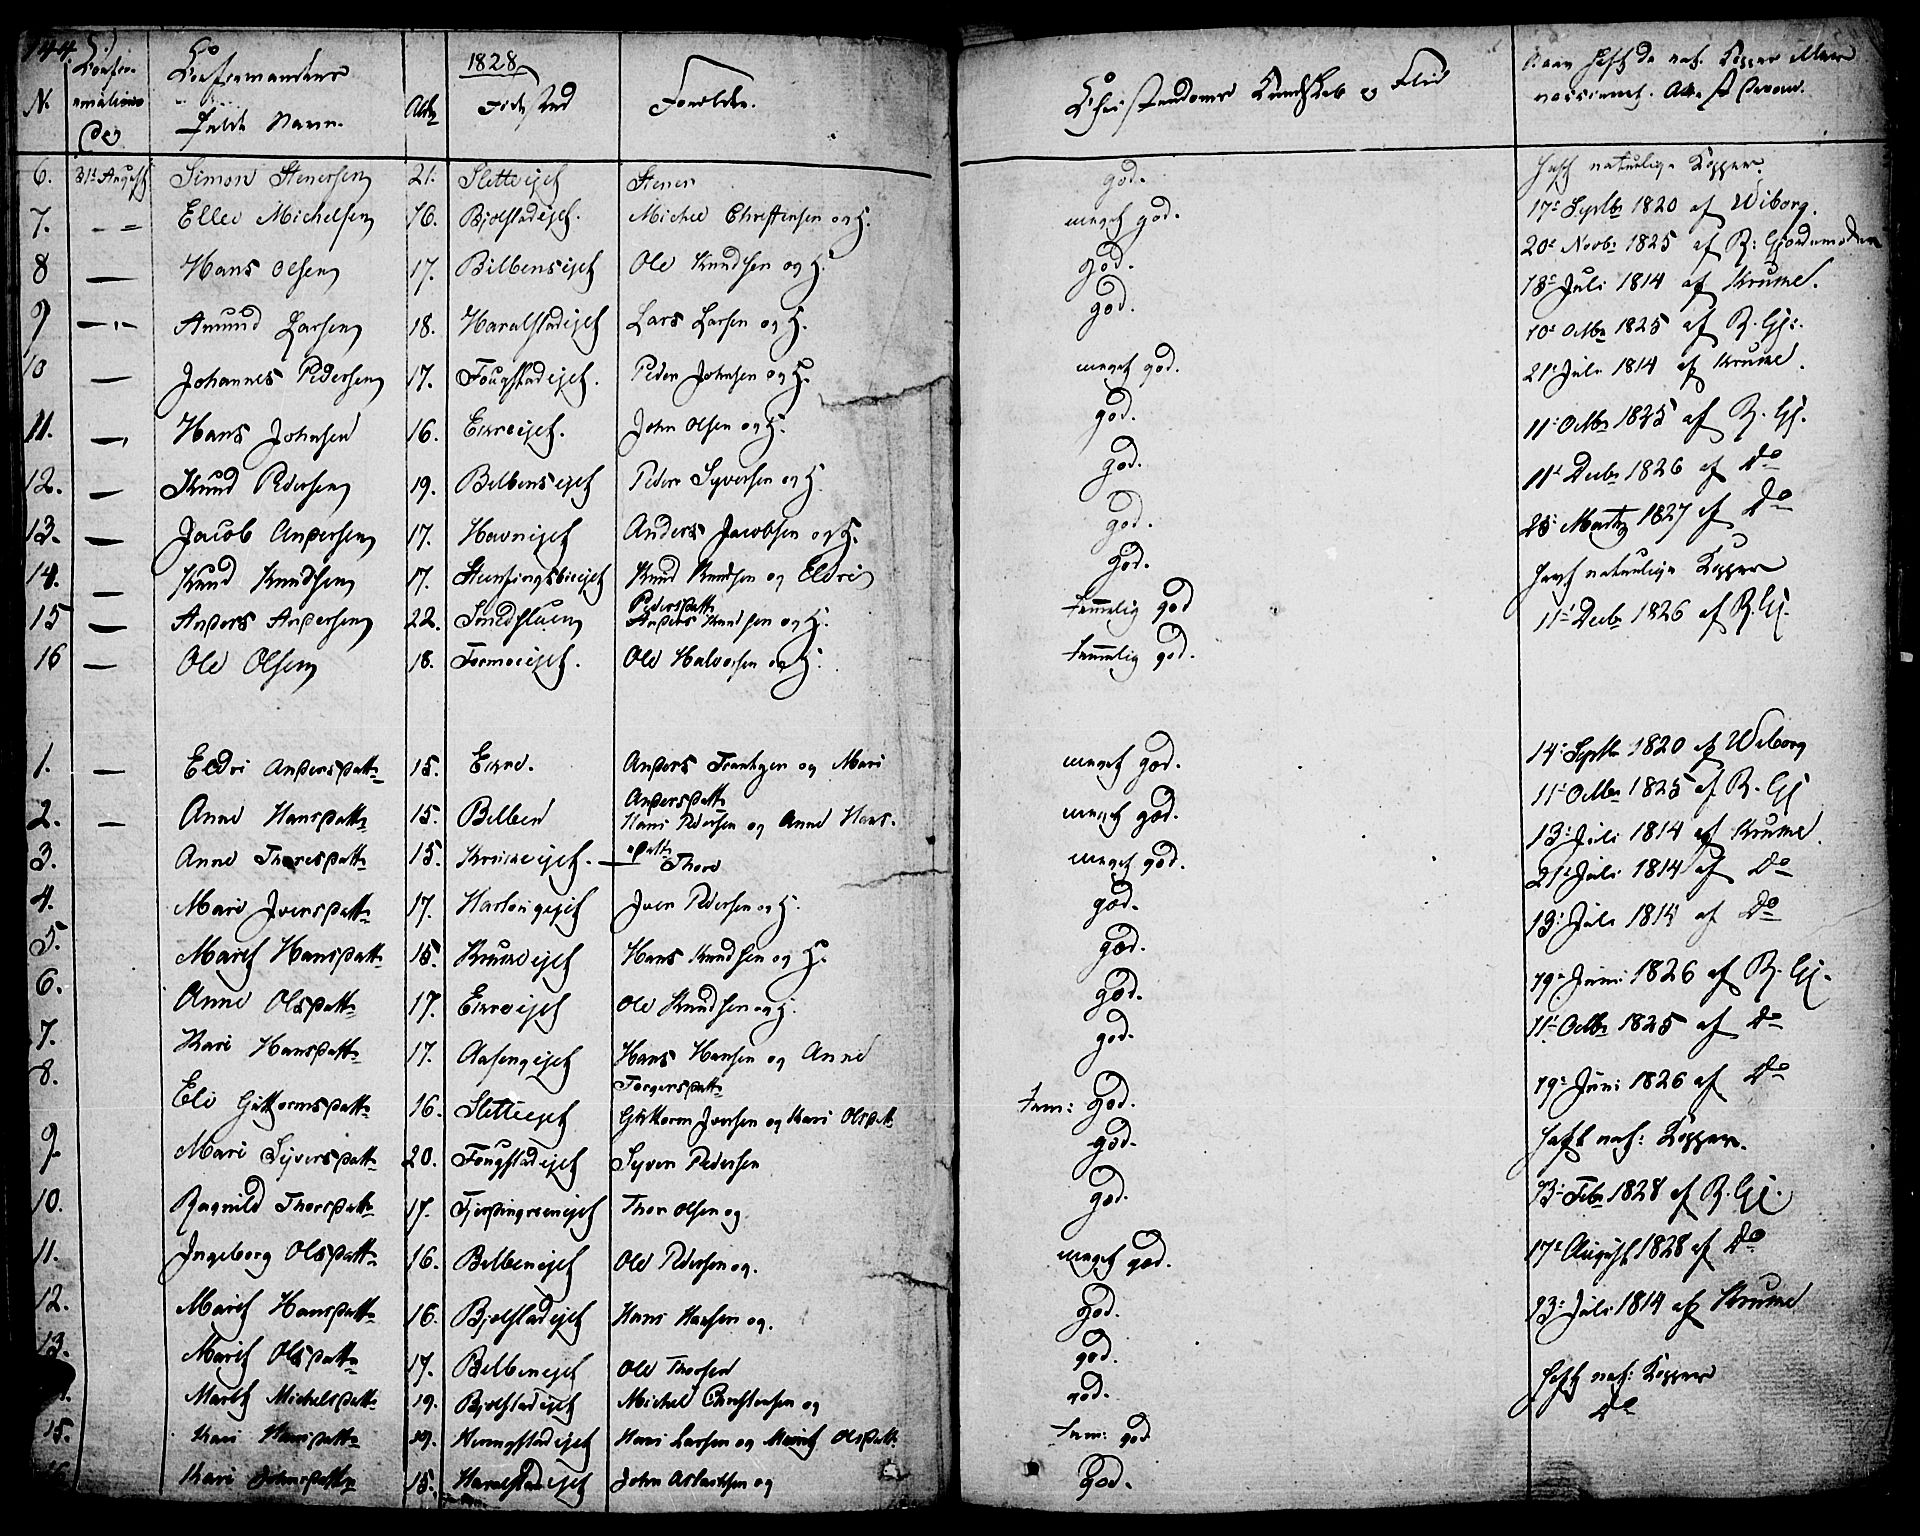 144.
1828
N.
Confirmations Dag
Confirmanders fulde Navn.
Alder
Fødested
Forældre.
Christendoms Kundskab og Flid
6. 31t August Simon Stenersen 21. Sletteejet Stener god. haft naturlige Kopper.
7. — Ellev Michelsen 16. Bjølstadejet. Michel Christensen og H. meget god. 17e Septbr 1820 af Wiborg.
8 — Hans Olsen 17. Bilbensejet Ole Knudsen og H. god. 20e Novbr 1825 af R: Gjordemoder
9 — Amund Larsen 18. Haralstadejet Lars Larsen og H. god. 18e Juli 1814 af Krume.
10 — Johannes Pedersen 17. Fougstadejet. Peder Johnsen og H. meget god. 10e Octbr 1825 af R. Gj:.
11. — Hans Johnsen 16. Exroejet. John Olsen og H. god. 21e Juli 1814 af Krume.
12. — Knud Pedersen 19. Belbensejet Peder Syversen og H. god. 11e Octbr 1825 af R. Gj.
13. — Jacob Andersen 17. Havnejet Anders Jacobsen og H. god. 11e Decbr 1826 af Do
14. — Knud Knudsen 17. Knud Knudsen og Eldri Pedersdatt. god. 28e Martz 1827 af Do
15 — Anders Andersen 22. Smedstuen Anders Knudsen og H. temmelig god haft naturlige Kopper
16 — Ole Olsen 18. Formoejet. Ole Halvorsen og H. temmelig god. 11e Decbr 1826 af R. Gj.
1. — Eldri Andersdatter 15. Exroe. Anders Frantzen og Mari Andersdatt meget god. 14e Septbr 1820 af Wiborg
2. — Anne Hansdatter 15. Belben Hans Pedersen og Anne Hansdatt meget god. 11e Octbr 1825 af R. Gj
3. Anne Thoresdatter 15. Krukeejet. — Thore meget god. 13e Juli 1814 af Krume.
4. Mari Iversdatter 17. Iver Pedersen og H. god. 21e Juli 1814 af Do
5. Marit Hansdatter 15. Krukeejet Hans Knudsen og H. god. 13e Juli 1814 af Do
6. Anne Olsdatter 17. Exroejet Ole Knudsen og H. god. 19e Juni 1826 af R. Gj.
7. Kari Hansdatter 17. Aasengejet Hans Hansen og Anne Torgersdatt god. 11e Octbr 1825 af Do
8. Eli Guttormsdatter 16. Sletteejet Guttorm Iversen og Kari Olsdatt tem: god. 19e Juni 1826 af Do
9. Mari Syversdatter 20. Fougstadejet Syver Pedersen god. haft nat: Kopper.
10. Ragnild Thorsdatter 17. Thor Olsen og god. 13e Febr 1828 af R. Gj.
11. Ingeborg Olsdatter 16. Belbenejet Ole Pedersen og. meget god. 17e August 1828 af Do
12. Marit Hansdatter 16. Bjølstadejet Hans Hansen og. god. 13e Juli 1814 af Krume
13. Marit Olsdatter 17. Belbenejet Ole Thorsen god.
Marit Michelsdatter 19. Bjølstadejet Michel Christensen og god. haft nat: Kopper
15. Kari Hansdatter 19. Hans Larsen og Marit Olsdatt. tem: god Do
Kari Johnsdatter 15. Haralstadejet John Aslaksen og god.